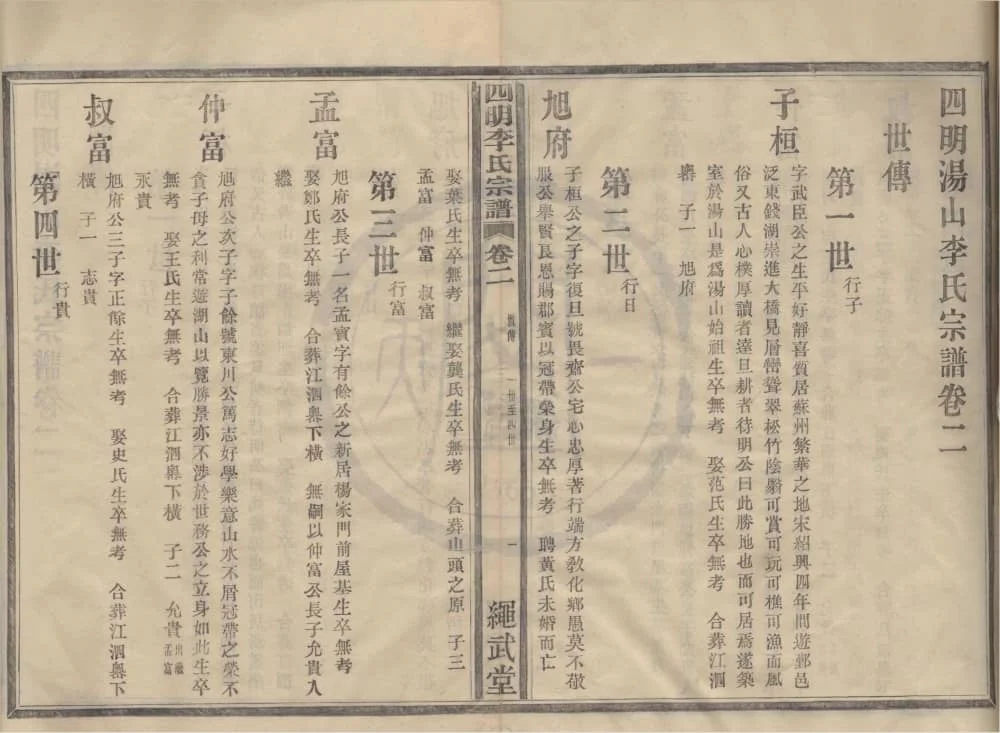 四明湯山李氏宗譜卷二
世傳
第一世 行子
子桓 字武臣公之生平好靜喜質居蘇州繁華之地宋紹興四年間遊鄞邑
泛東錢湖崇進大橋見層巒聳翠松竹陰翳可賞可玩可樵可漁而風
俗又古人心樸厚讀者達旦耕者待明公曰此勝地也而可居焉遂築
室於湯山是爲湯山始祖生卒無考 娶范氏生卒無考 合葬江泗
嶴 子一 旭府
第二世 行日
旭府 子桓公之子字復旦號畏齋公宅心忠厚著行端方教化鄉愚莫不敬
服公舉賢良恩賜郡賓以冠帶榮身生卒無考 聘黃氏未婚而亡
四明李氏宗譜 卷二 世傳 一世至四世 一 繩武堂
娶葉氏生卒無考 繼娶龔氏生卒無考 合葬山頭之原 子三
孟富 仲富 叔富
第三世 行富
孟富 旭府公長子一名孟實字有餘公之新居楊家門前屋基生卒無考
娶鄭氏生卒無考 合葬江泗嶴下橫 無嗣以仲富公長子允貴入
繼
仲富 旭府公次子字子餘號東川公篤志好學樂意山水不屑冠帶之榮不
貪子母之利常遊湖山以覽勝景亦不涉於世務公之立身如此生卒
無考 娶王氏生卒無考 合葬江泗嶴下橫 子二 允貴出繼孟富
永貴
叔富 旭府公三子字正餘生卒無考 娶史氏生卒無考 合葬江泗嶴下
橫 子一 志貴
第四世 行貴